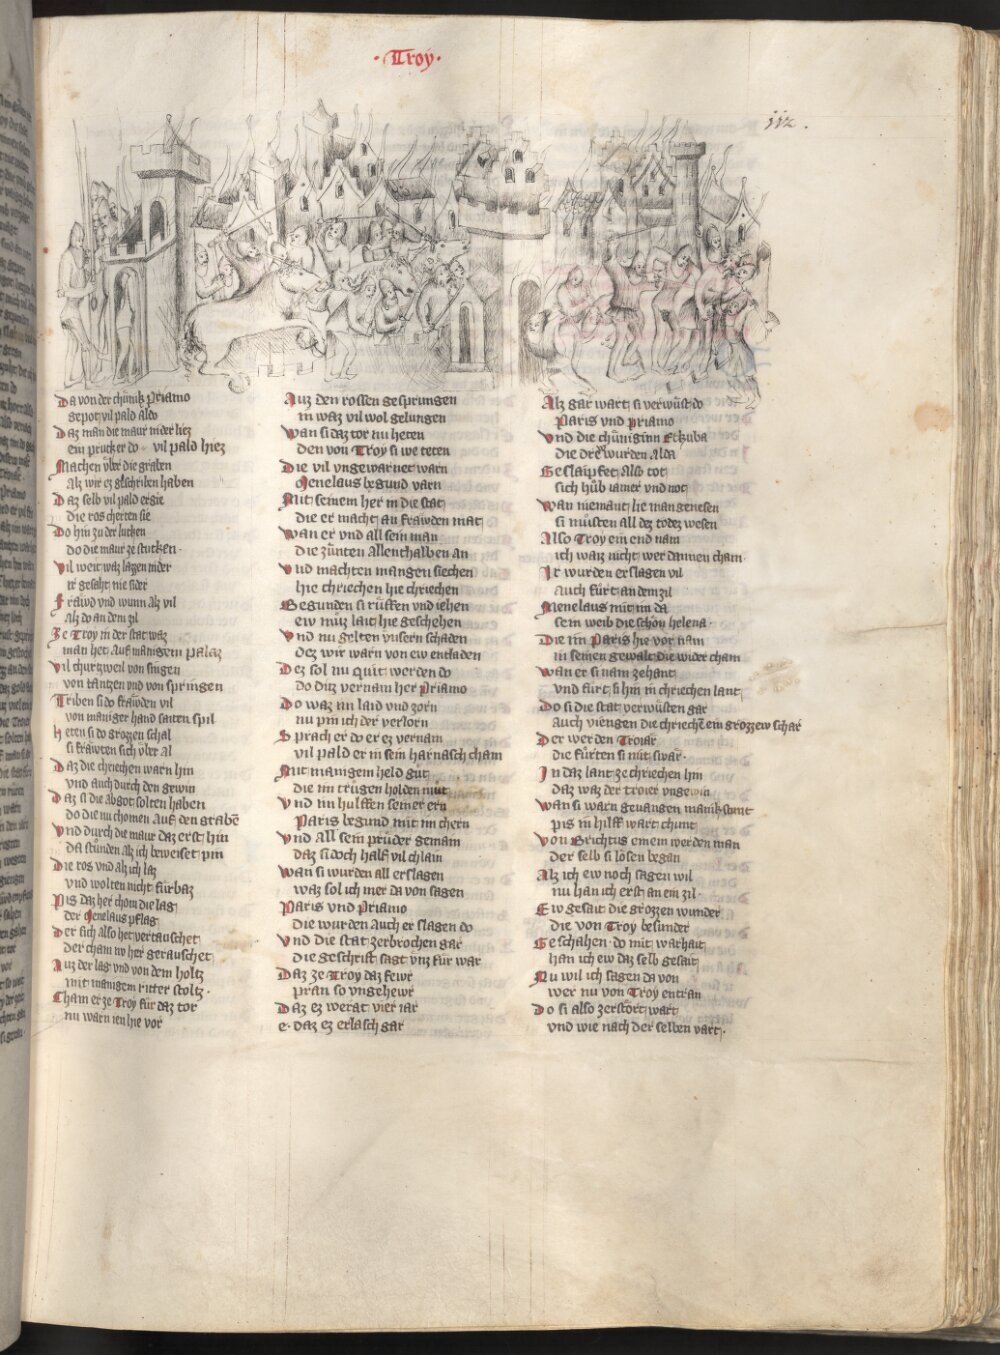 ·Troy·
112.
Da von der chünik Priamo
gepot vil pald aldo
Daz man die maur nider liez
ein prucker do vil pald hiez
Machen vber die graben
Alz wir ez geschriben haben
Daz selb vil pald ergie
die ros cherten sie
Do hin zu der lucken
do die maur ze stucken·
Vil weit waz lagen nider
ir gesaht nie sider
Fräwd vnd wunn alz vil
Alz do an dem zil
Ze Troy in der stat waz
man het Auf manigem palaz
Vil churtzweil von singen
von täntzen vnd von springen
Triben si do fräwden vil
von maniger hand saiten spil
Heten si do grozzen schal
si fräwten sich vber al
Daz die chriechen warn hin
vnd auch durch den gewin
Daz si die abgot solten haben
do die nu chomen Auf den grabē
Vnd durch die maur daz erst hin
Da stunden alz ich beweiset pin
Die ros vnd alz ich laz
vnd wolten nicht fürbaz
Pis daz her chom die lag
der Menelaus pflag
Der sich also het vertauschet
der cham nv her gerauschet
Auz der lag vnd von dem holtz
mit manigem ritter stoltz·
Cham er ze Troy für daz tor
nu warn ien hie vor
Auz den rossen gesprungen
in waz vil wol gelungen
Wan si daz tor nu heten
den von Troy si we teten
Die vil vngewarnet warn
Menelaus begund varn
Mit seinem her in die stat
die er macht an fräwden mat
Wan er vnd all sein man
die zünten allenthalben an
Vnd machten mangen siechen
hie chriechen hie chriechen
Begunden si rüffen vnd iehen
ew müz lait hie geschehen
Vnd nu gelten vnsern schaden
Dez wir warn von ew entladen
Dez sol nu quit werden do
do ditz vernam her Priamo
Do waz im laid vnd zorn
nu pin ich der verlorn
Sprach er do er ez vernam
vil pald er in sein harnasch cham
Mit manigem held gut
die im trügen holden müt
Vnd im hulffen seiner ern
Paris begund mit im chern
Vnd all sein prüder gemain
daz si doch half vil chlain
Wan si wurden all erslagen
waz sol ich mer da von sagen
Paris vnd Priamo
die wurden auch erslagen do
Vnd die stat zerbrochen gar
die geschrift sagt vnz für war
Daz ze Troy daz fewr
pran so vngehewr
Daz ez werat vier iar
e· daz ez erlasch gar
Alz gar wart si verwüst do
Paris vnd priamo
Vnd die chüniginn Eckuba
die drew wurden alda
Geslaipfet also tot
sich hüb iamer vnd not
Wan niemant lie man genesen
si müsten all dez todez wesen
Also Troy ein end nam
ich waz nicht wer dannen cham·
Ir wurden erslagen vil
auch fürt an dem zil
Menelaus mit im da
sein weib die schön helena·
Die im Paris hie vor nam
in seinen gewalt die wider cham
Wan er si nam zehant
vnd fürt si hin in chriechen lant
Do si die stat verwüsten gar
auch viengen die chriechē ein grozzew schar
Der werden Troiär
die fürten si mit swär·
In daz lant ze chriechen hin
daz waz der troier vngewin
Wan si warn geuangen
pis in hilff wart chunt
Von Brichtus einem werden man
der selb si lösen began
Alz ich ew noch sagen wil
nu han ich erst an ein zil·
Ew gesait die grozzen wunder
die von Troy besunder
Geschahen· do mit warhait
han ich ew daz selb gesait
Nu wil ich sagen da von
wer nu von Troy entran
Do si also zerstört wart
vnd wie nach der selben vart·